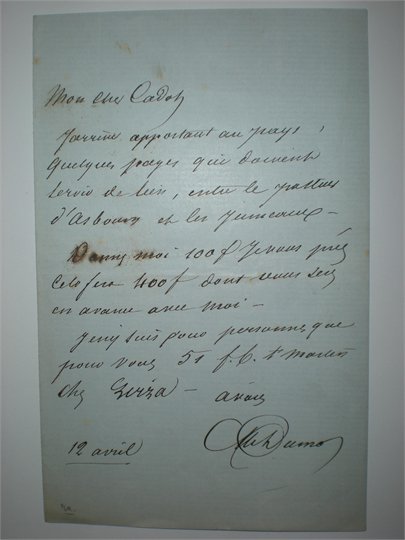 Mon cher Cadot
J'arrive apportant au pays,
quelques pages qui doivent
servir de lien, entre le pasteur
d'Asbourg et les Jumeaux –
Donnez moi 100 f Je vous prie
Cela fera 400 f dont vous serez
en avance avec moi –
Je n'y suis pour personne que
pour vous 51 f. b. St Martin
chez – à vous
12 avril
Alex Dumas